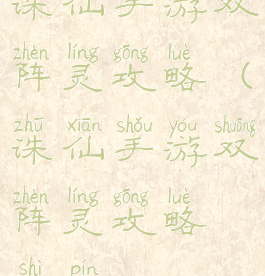 诛仙手游双
zhèn líng gōng luè
阵灵攻略（
zhū xiān shǒu yóu shuāng
诛仙手游双
zhèn líng gōng luè
阵灵攻略
shì pín